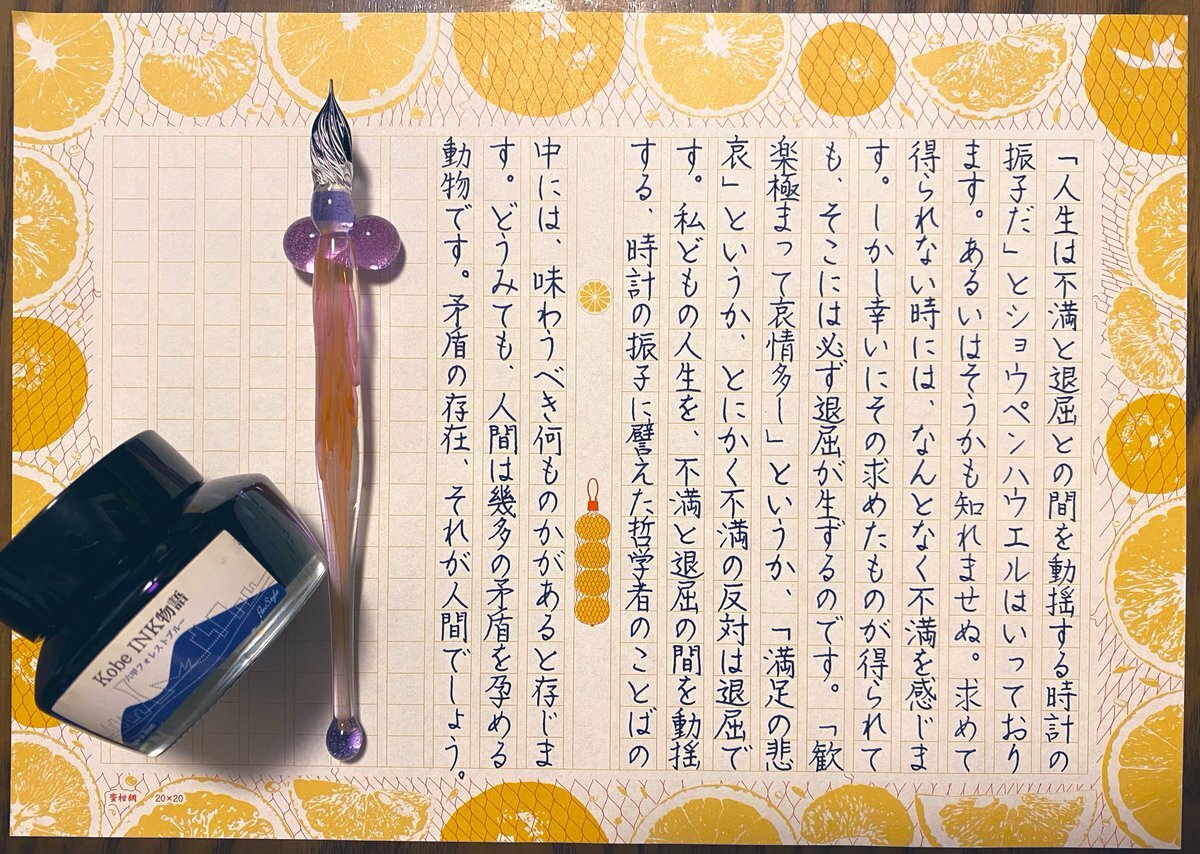 「人生は不満と退屈との間を動揺する時計の
振子だ」とショウペンハウエルはいっており
ます。あるいはそうかも知れませぬ。求めて
得られない時には、なんとなく不満を感じま
す。しかし幸いにその求めたものが得られて
も、そこには必ず退屈が生ずるのです。「歓
楽極まって哀情多し」というか、「満足の悲
哀」というか、とにかく不満の反対は退屈で
す。私どもの人生を、不満と退屈の間を動揺
する、時計の振子に譬えた哲学者のことばの
中には、味わうべき何ものかがあると存じま
す。どうみても、人間は幾多の矛盾を孕める
動物です。矛盾の存在、それが人間でしょう。
Kobe INK物語
六甲フォレストブルー
Pen Style
蜜柑網 20×20